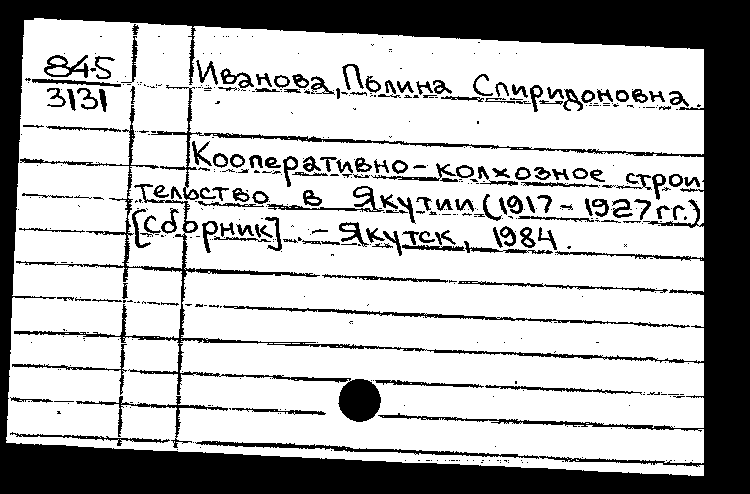 845
3131
Иванова, Полина Спиридоновна.
Кооперативно-колхозное строи
тельство в Якутии (1917-1927гг.)
[Сборник]. - Якутск, 1984.